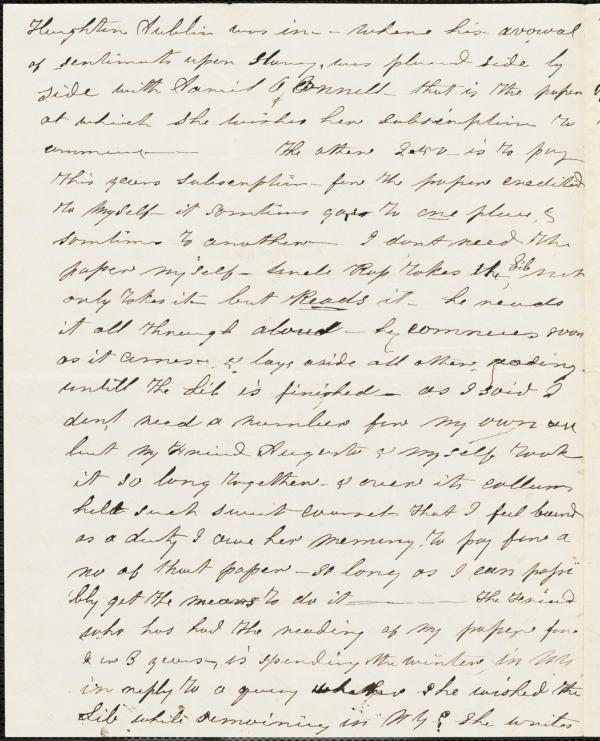 Haughton Dublin was in - where his avowal
of sentiments upon Slavery, was placed side by
side with Daniel O Connell - that is the paper
at which she wishes her subscription to
commence The other 2.50 - is to pay
this years subscription - for the paper credited
to myself - it somtimes goes to one place, &
somtimes to another - I dont need the
paper myself - Uncle Rop takes the Lib not
only takes it - but Reads it - he reads
it all through aloud - he commences soon
as it comes - & lays aside all other reading -
untill the Lib is finished - as I said I
don't need a number for my own use
but my Friend Augusta & myself took
it so long together - & over its collums
held such sweet counsel - that I feel bound
as a duty I owe her memory to pay for a
no of that paper - so long as I can possi
bly get the means to do it The Friend
who has had the reading of my paper for
2 or 3 years, is spending the winter in NY
in reply to a query whether she wished the
Lib while remaining in NY - she writes